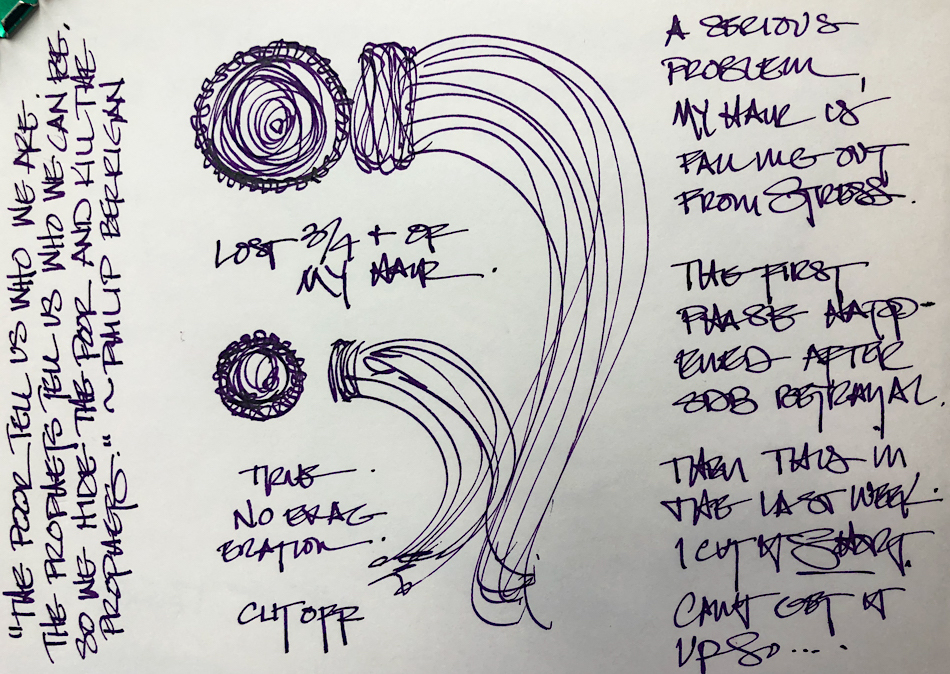 "THE POOR TELL US WHO WE ARE.
THE PROPHETS TELL US WHO WE CAN BE.
SO WE HIDE THE POOR AND KILL THE
PROPHETS." ~ PHILIP BERRIGAN
LOST 3/4 + OF
MY HAIR.
TRUE.
NO EXAG
ERATION.
CUT OFF
A SERIOUS
PROBLEM,
MY HAIR IS
FALLING OUT
FROM STRESS.
THE FIRST
PHASE HAPP-
ENED AFTER
SDB BETRAYAL.
THEN THIS IN
THE LAST WEEK.
I CUT IT SHORT.
CAN'T GET IT
UP SO....